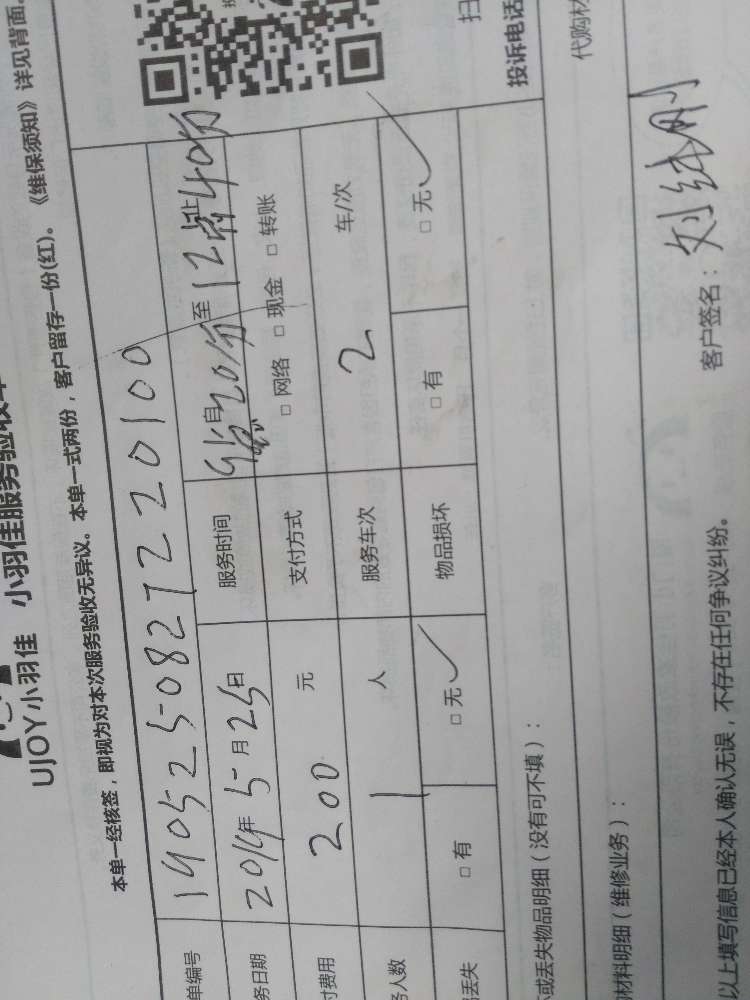 UJOY小羽佳 小羽佳服务验收单
本单一经核签，即视为对本次服务验收无异议。本单一式两份，客户留存一份(红)。《维保须知》详见背面。
单编号 1905250827220100
务日期 2019年5月25日 服务时间 自 20分 至 12时40分
付费用 200 元 支付方式 □ 网络 □ 现金 □ 转账
务人数 1 人 服务车次 2 车/次
品丢失 □ 有 □ 无 ✓ 物品损坏 □ 有 □ 无 ✓
或丢失物品明细（没有可不填）：
材料明细（维修业务）： 代购材
以上填写信息已经本人确认无误，不存在任何争议纠纷。 客户签名：刘
扫
投诉电话